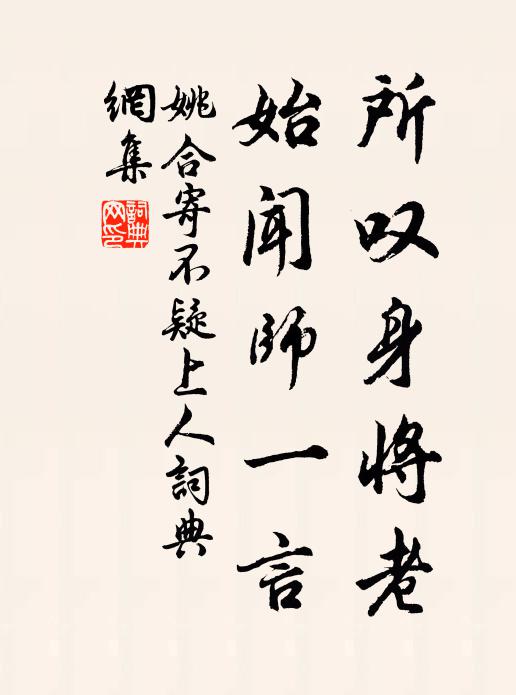 所叹身将老
始闻師一言
姚合寄不疑上人詞典
網集
詞典网印